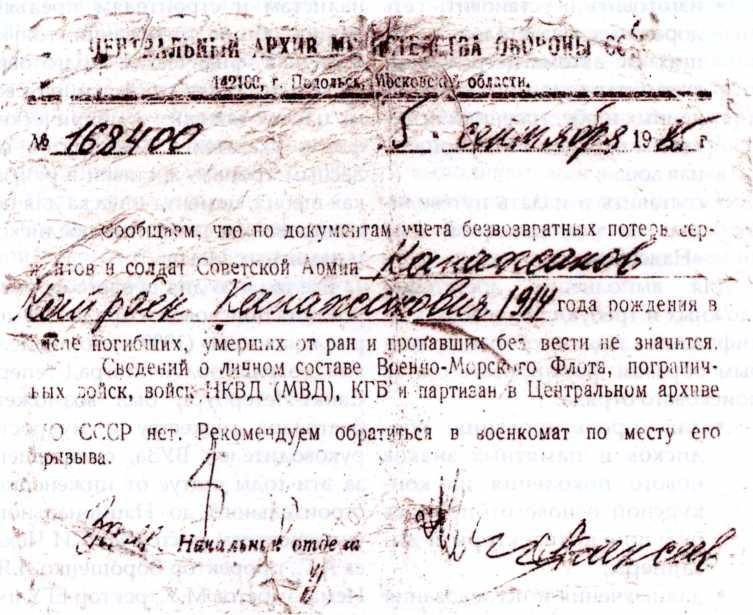 ЦЕНТРАЛЬНЫЙ АРХИВ МИНИСТЕРСТВА ОБОРОНЫ СССР
142100, г. Подольск, Московской области.
№ 168400 5 - сентября 198 г
Сообщаем, что по документам учета безвозвратных потерь сер-
жантов и солдат Советской Армии
1914 года рождения в
числе погибших, умерших от ран и пропавших без вести не значится.
Сведений о личном составе Военно-Морского Флота, погранич-
ных войск, войск НКВД (МВД), КГБ и партизан в Центральном архиве
МО СССР нет. Рекомендуем обратиться в военкомат по месту его
призыва.
Начальник отдела